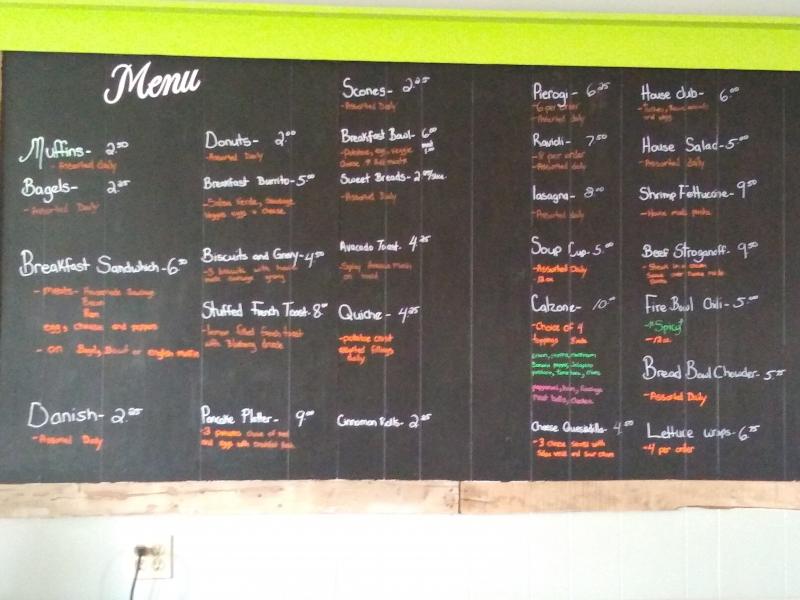 Menu
Muffins- 2.50
- Assorted daily
Bagels- 2.25
- Assorted Daily
Breakfast Sandwhich-6.50
- meats- Homemade Sausage
Bacon
Ham
egg, cheese and peppers
- on Bagel, Biscuit or english muffin
Danish- 2.25
- Assorted Daily
Donuts- 2.00
- Assorted Daily
Breakfast Burrito-5.00
- Salsa Verde, Sausage
Veggies eggs & cheese
Biscuits and Gravy-4.50
- 3 biscuits with home
made sausage gravy
Stuffed French Toast-8.00
- lemon filled french toast
with Blueberry drizzle
Pancake Platter- 9.00
- 3 pancakes choice of meat
and eggs with breakfast
Scones- 2.25
- Assorted Daily
Breakfast Bowl- 6.00
- potatoe, egg, veggie
cheese
Sweet Breads- 2.00/slice
- Assorted Daily
Avocado Toast- 4.25
- Spicy Avocado Mash
on toast
Quiche- 4.25
- potatoe crust
assorted fillings
daily
Cinnamon Rolls- 2.25
Pierogi- 6.25
- 6 per order
- Assorted daily
Ravioli- 7.50
- 8 per order
- Assorted daily
lasagna- 8.00
- Assorted Daily
Soup Cup- 5.00
- Assorted Daily
12 oz
Calzone- 10.00
- Choice of 4
toppings
green, onions, mushroom
banana pepper, Jalapeno
pineapple, tomatoes, olives
pepperoni, ham, Sausage
meat balls, chicken
Cheese Quesadilla- 4.00
- 3 cheese served with
Salsa verde and sour cream
House club- 6.00
House Salad-5.00
- Assorted daily
Shrimp Fettucone- 9.50
- Home made pasta
Beef Stroganoff- 9.50
Fire Bowl Chili- 5.00
- "Spicy"
- 12oz
Bread Bowl Chowder- 5.75
- Assorted Daily
Lettuce wraps- 6.75
- 4 per order